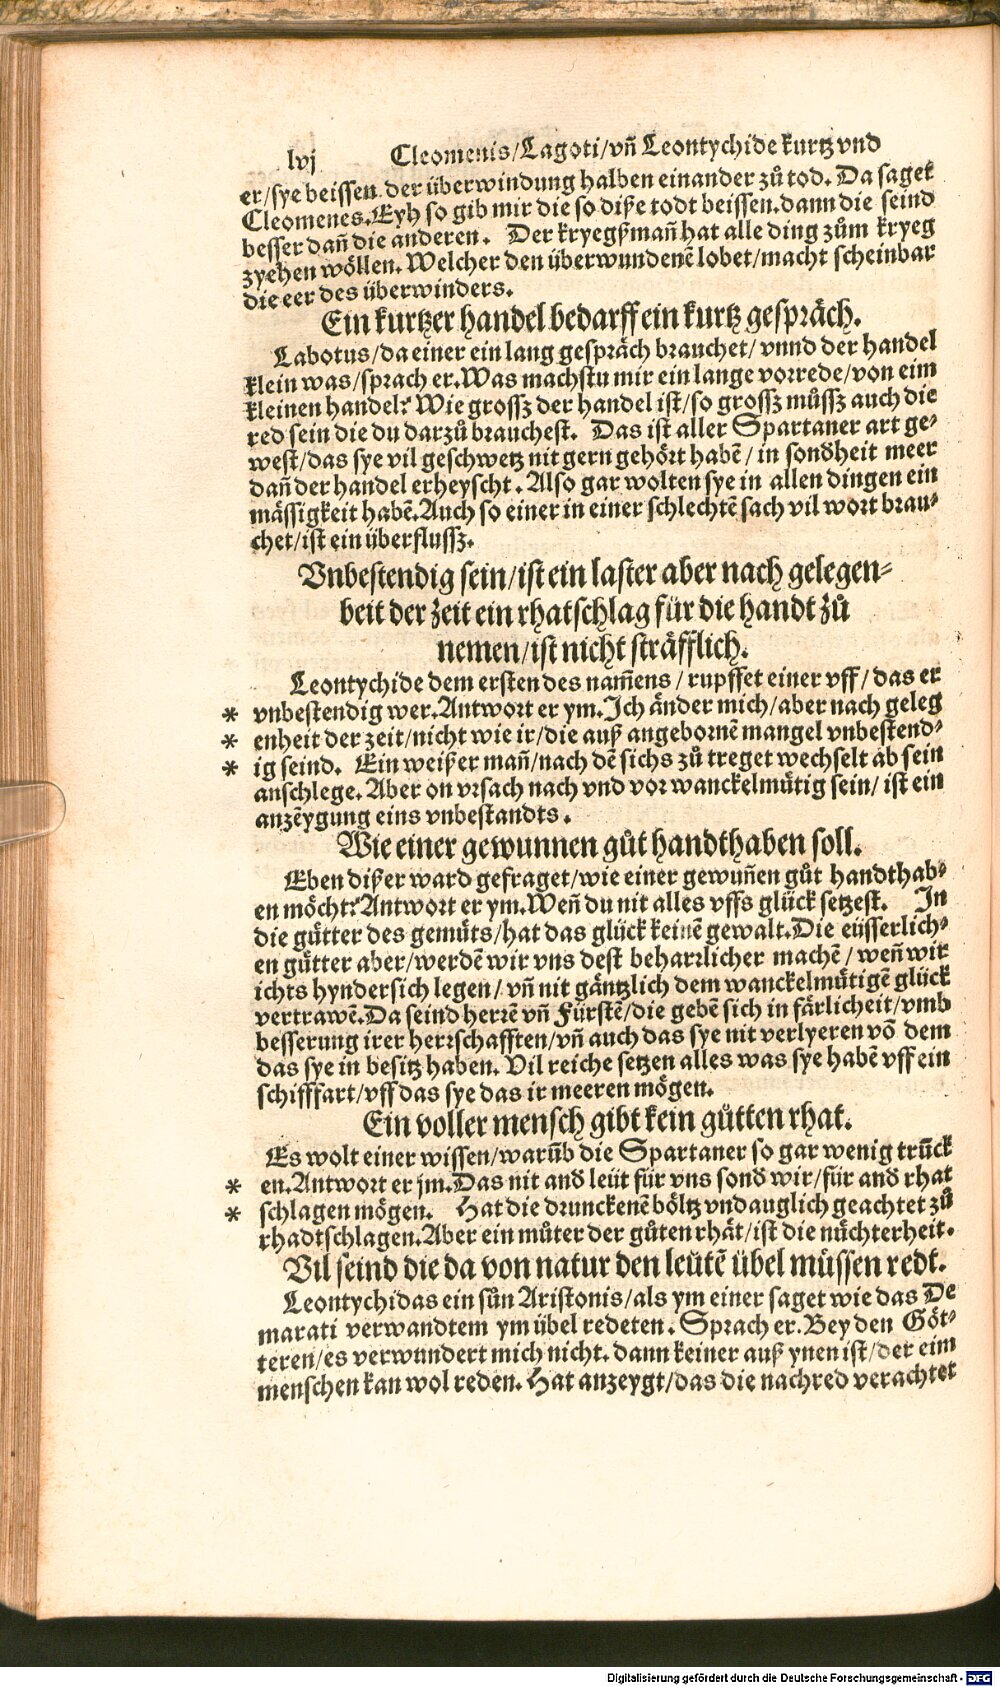 lvj Cleomenis/Lagoti/vn̄ Leontychide kurtz vnd
er/sye beissen der überwindung halben einander zů tod. Da saget
Cleomenes. Eyh so gib mir die so diße todt beissen. dann die seind
besser dan̄ die anderen. Der kryegßman̄ hat alle ding zům kryeg
zyehen wöllen. Welcher den überwundenē lobet/macht scheinbar
die eer des überwinders.
Ein kurtzer handel bedarff ein kurtz gespräch.
Labotus/da einer ein lang gespräch brauchet/vnnd der handel
klein was/sprach er. Was machstu mir ein lange vorrede/von eim
kleinen handel? Wie grossz der handel ist/so grossz můssz auch die
red sein die du darzů brauchest. Das ist aller Spartaner art ge⸗
west/das sye vil geschwetz nit gern gehört habē/in sonďheit meer
dan̄ der handel erheyscht. Also gar wolten sye in allen dingen ein
mässigkeit habē. Auch so einer in einer schlechtē sach vil wort brau⸗
chet/ist ein überflussz.
Vnbestendig sein/ist ein laster aber nach gelegen⸗
heit der zeit ein rhatschlag für die handt zů
nemen/ist nicht sträfflich.
Leontychide dem ersten des nam̄ens/rupffet einer vff/das er
* vnbestendig wer. Antwort er ym. Ich änder mich/aber nach geleg
* enheit der zeit/nicht wie ir/die auß angebornē mangel vnbestend⸗
* ig seind. Ein weißer man̄/nach dē sichs zů treget wechselt ab sein
anschlege. Aber on vrsach nach vnd vor wanckelmütig sein/ist ein
anzēygung eins vnbestandts.
Wie einer gewunnen gůt handthaben soll.
Eben dißer ward gefraget/wie einer gewun̄en gůt handthab⸗
en möcht? Antwort er ym. Wen̄ du nit alles vffs glück setzest. In
die gütter des gemüts/hat das glück keinē gewalt. Die eüsserlich⸗
en gütter aber/werdē wir vns dest beharrlicher machē/wen̄ wir
ichts hyndersich legen/vn̄ nit gäntzlich dem wanckelmütigē glück
vertrawē. Da seind herrē vn̄ Fürstē/die gebē sich in färlicheit/vmb
besserung irer herrschafften/vn̄ auch das sye nit verlyeren vō dem
das sye in besitz haben. Vil reiche setzen alles was sye habē vff ein
schifffart/vff das sye das ir meeren mögen.
Ein voller mensch gibt kein gütten rhat.
Es wolt einer wissen/warūb die Spartaner so gar wenig trūck
* en. Antwort er jm. Das nit and leüt für vns sonď wir/für and rhat
* schlagen mögen. Hat die drunckenē böltz vndauglich geachtet zů
rhadtschlagen. Aber ein můter der gůten rhät/ist die nüchterheit.
Vil seind die da von natur den leütē übel müssen redt.
Leontychidas ein sůn Aristonis/als ym einer saget wie das De
marati verwandtem ym übel redeten. Sprach er. Bey den Göt⸗
teren/es verwundert mich nicht. dann keiner auß ynen ist/der eim
menschen kan wol reden. Hat anzeygt/das die nachred verachtet
Digitalisierung gefördert durch die Deutsche Forschungsgemeinschaft - DFG